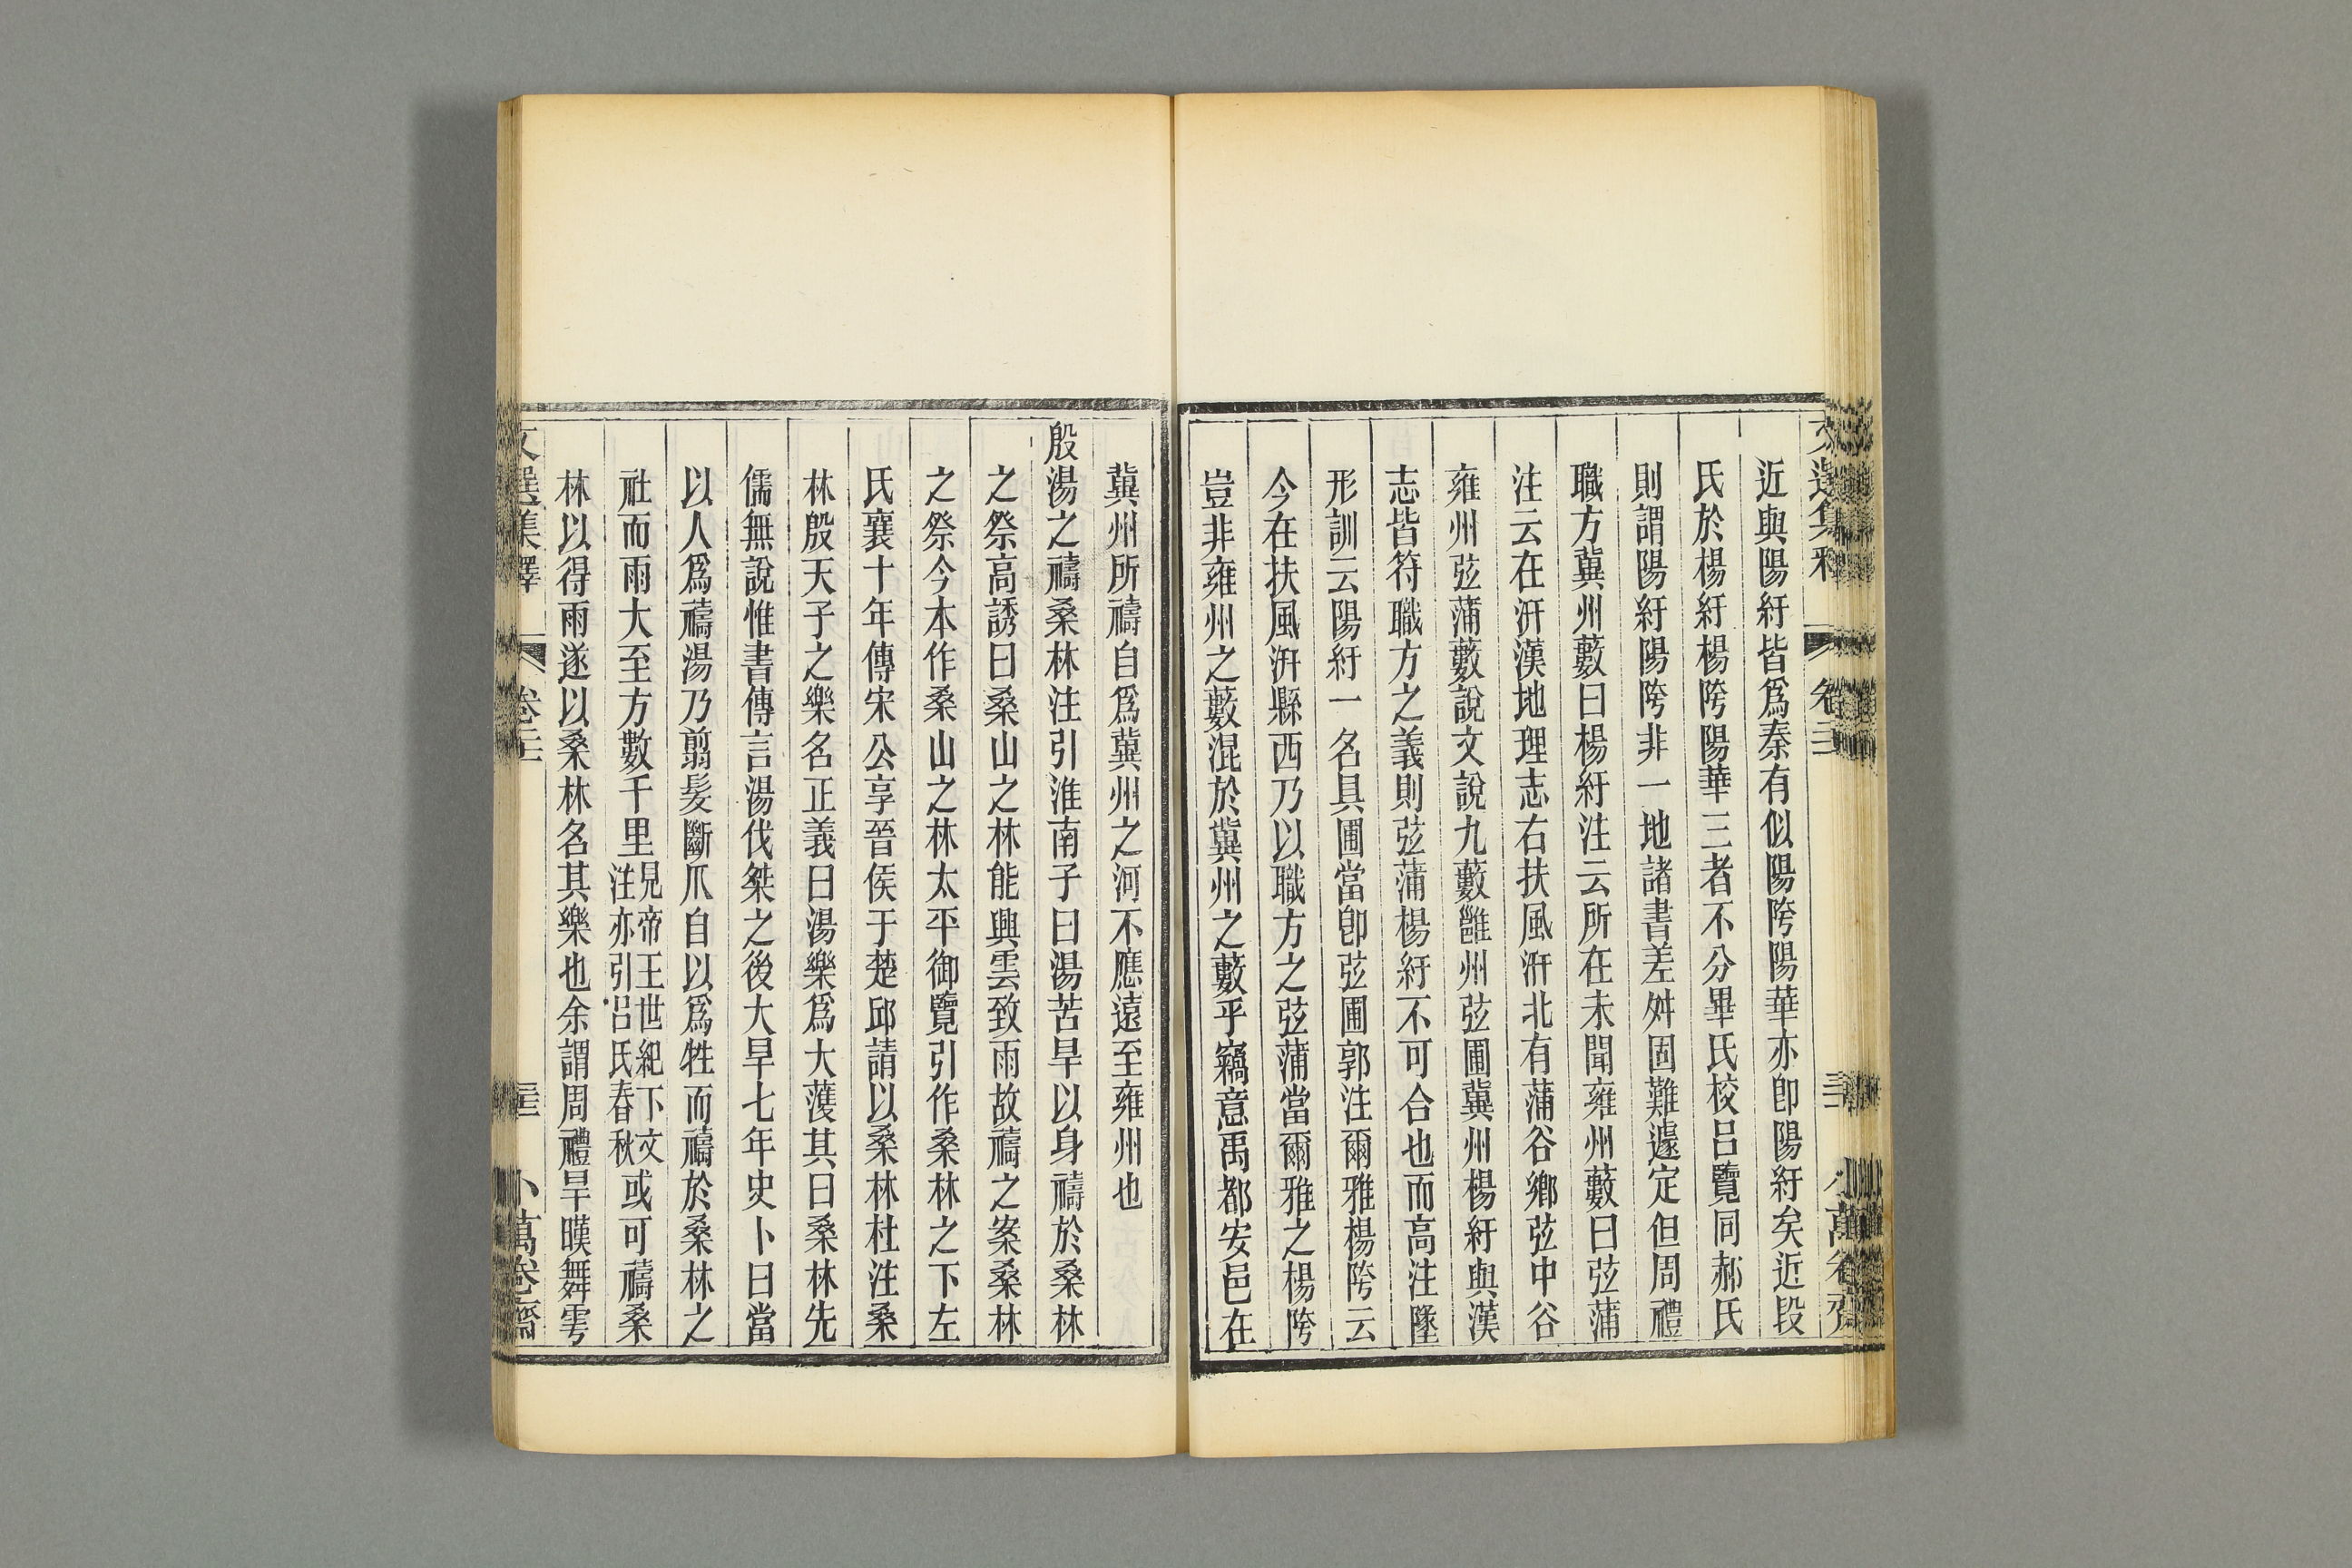 近與陽紆皆爲秦有似陽陓陽華亦卽陽紆矣近段
氏於楊紆楊陓陽華三者不分畢氏校呂覽同郝氏
則謂陽紆陽陓非一地諸書差舛固難遽定但周禮
職方冀州藪曰楊紆注云所在未聞雍州藪曰弦蒲
注云在汧漢地理志右扶風汧北有蒲谷鄉弦中谷
雍州弦蒲藪說文說九藪雝州弦圃冀州楊紆與漢
志皆符職方之義則弦蒲楊紆不可合也而高注墬
形訓云陽紆一名具圃當卽弦圃郭注爾雅楊陓云
今在扶風汧縣西乃以職方之弦蒲當爾雅之楊陓
豈非雍州之藪混於冀州之藪乎竊意禹都安邑在
冀州所禱自爲冀州之河不應遠至雍州也
殷湯之禱桑林注引淮南子曰湯苦旱以身禱於桑林
之祭高誘曰桑山之林能興雲致雨故禱之案桑林
之祭今本作桑山之林太平御覽引作桑林之下左
氏襄十年傳宋公享晉侯于楚邱請以桑林杜注桑
林殷天子之樂名正義曰湯樂爲大濩其曰桑林先
儒無說惟書傳言湯伐桀之後大旱七年史卜曰當
以人爲禱湯乃翦髮斷爪自以爲牲而禱於桑林之
社而雨大至方數千里見帝王世紀下文注亦引呂氏春秋或可禱桑
林以得雨遂以桑林名其樂也余謂周禮旱暵舞雩
文選集釋 卷二 小萬卷齋